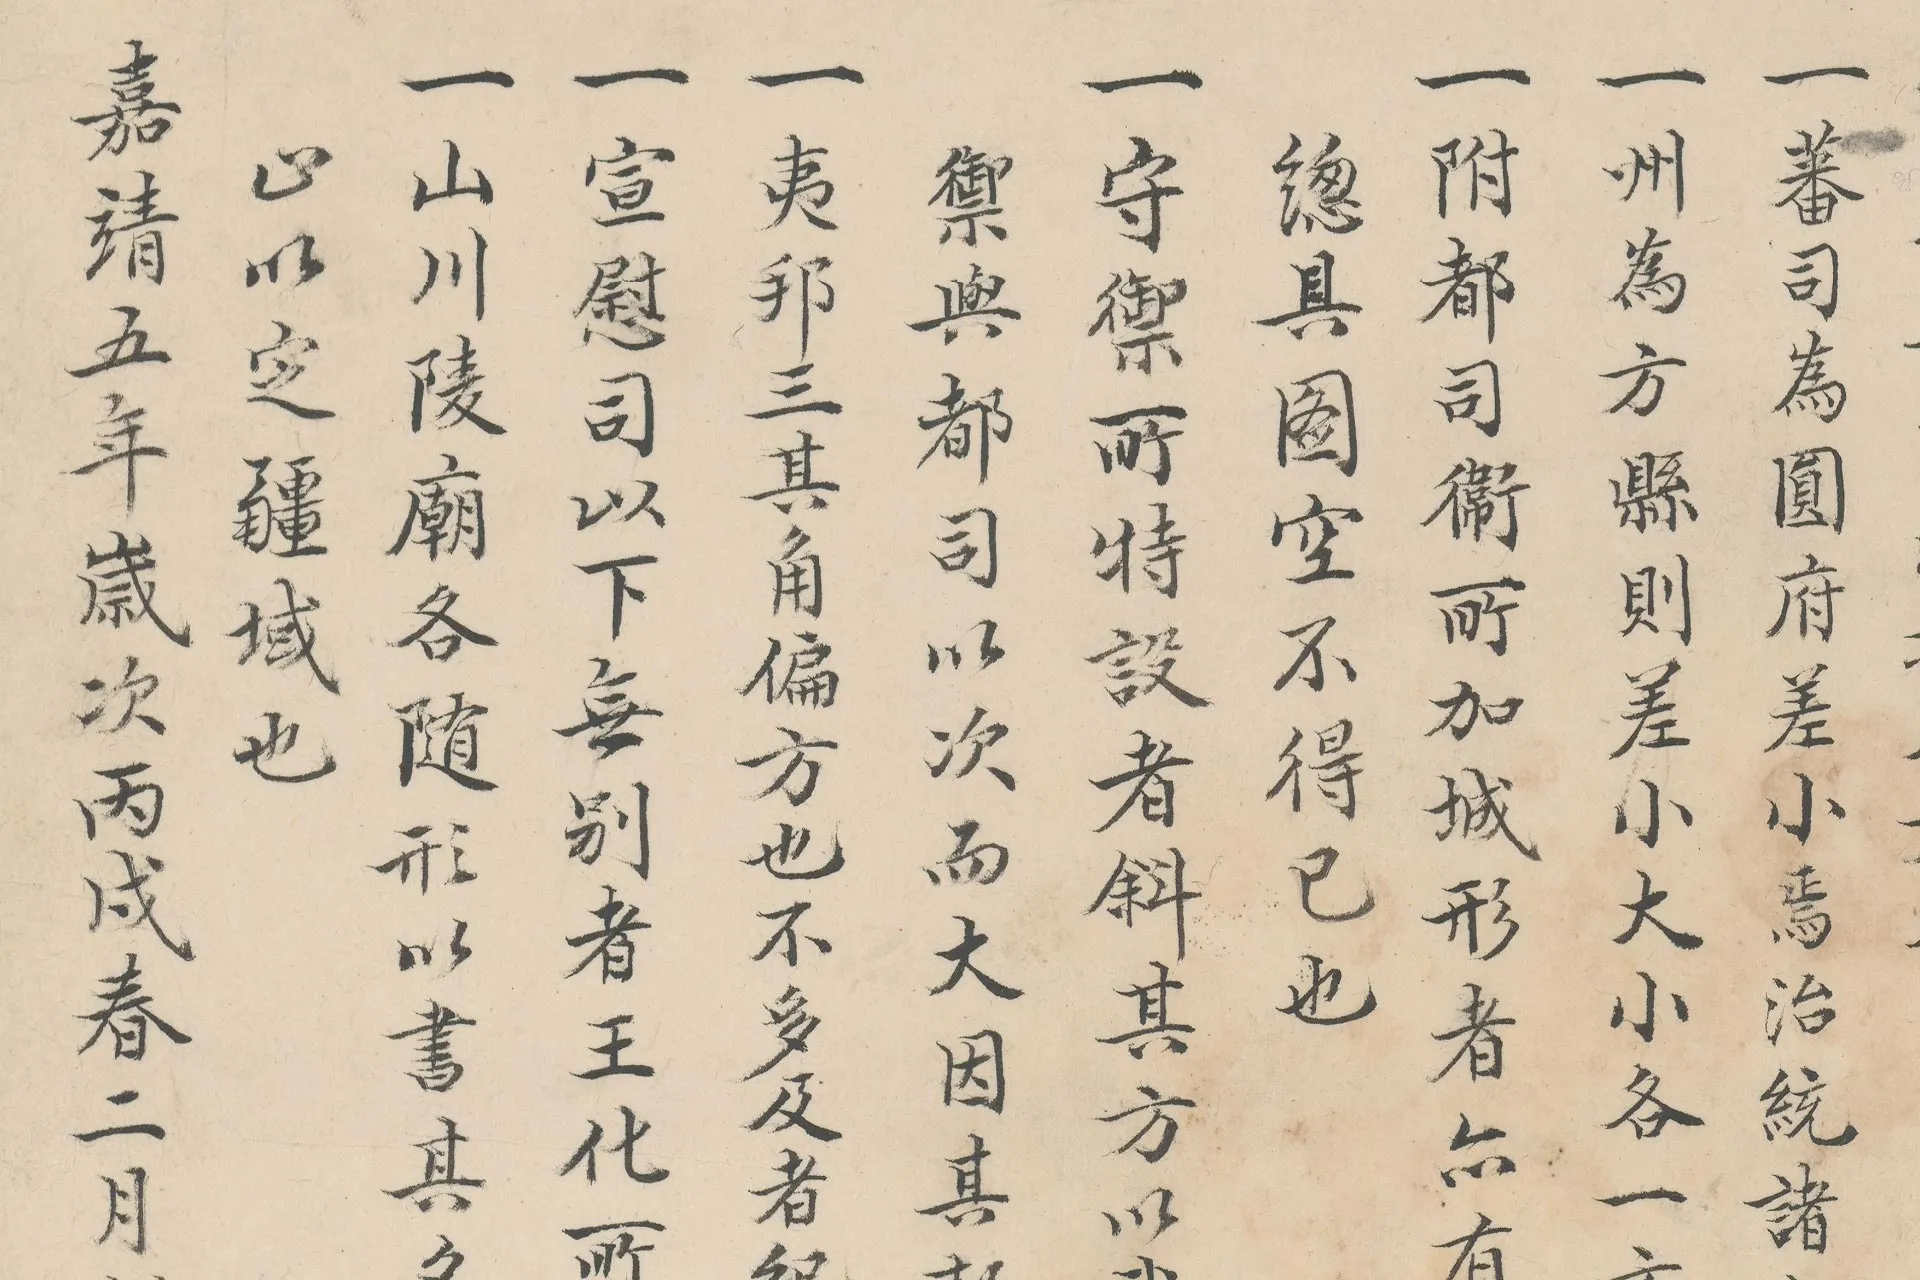 一蕃司為圓府差小焉治統諸
一州為方縣則差小大小各一方
一附都司衞所加城形者亦有
總具圖空不得已也
一守禦所特設者斜其方以
禦與都司以次而大因其
一夷邦三其角偏方也不多及者
一宣慰司以下無别者王化所
一山川陵廟各随形以書其名
止以定疆域也
嘉靖五年歲次丙戌春二月